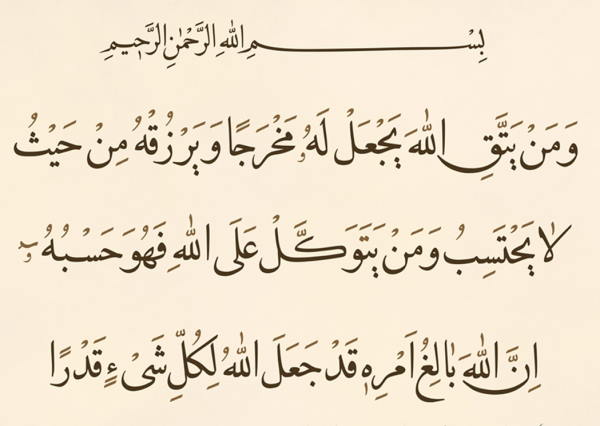 بِسْمِ اللّٰهِ الرَّحْمٰنِ الرَّحٖيمِ
وَمَنْ يَتَّقِ اللّٰهَ يَجْعَلْ لَهُ مَخْرَجًا وَيَرْزُقْهُ مِنْ حَيْثُ
لَا يَحْتَسِبُ وَمَنْ يَتَوَكَّلْ عَلَى اللّٰهِ فَهُوَ حَسْبُهُ
اِنَّ اللّٰهَ بَالِغُ اَمْرِهٖ قَدْ جَعَلَ اللّٰهُ لِكُلِّ شَیْءٍ قَدْرًا